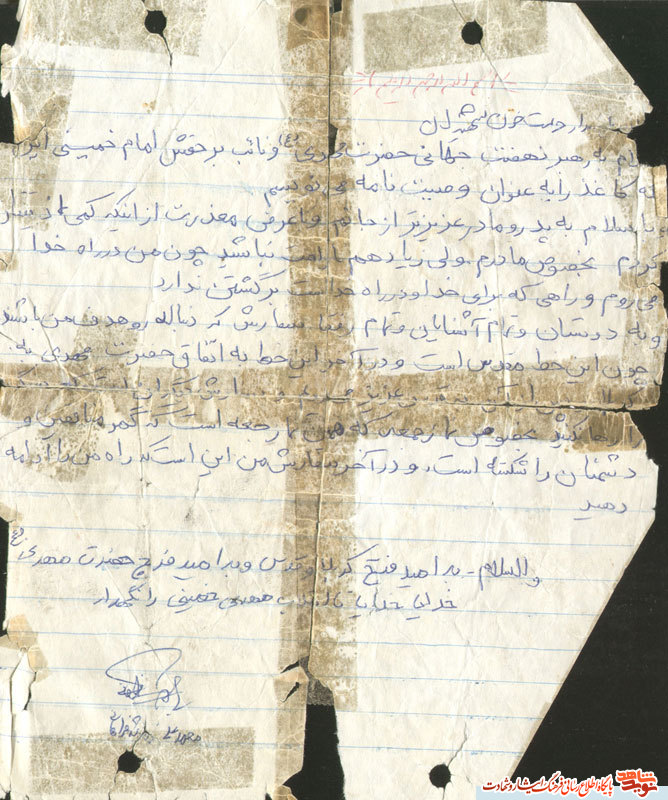 بسم الله الرحمن الرحیم
خون شهیدان
به رهبر نهضت جهانی حضرت مهدی (عج) و نائب برحقش امام خمینی این
کاغذ را به عنوان وصیت نامه می نویسم
با سلام به پدر و مادر عزیزتر از جانم و با عرض معذرت از اینکه کمی
کردم بخصوص مادرم ولی زیاد هم ناراحت نباشید چون من در راه خدا
می روم و راهی که برای خدا و در راه خداست برگشتن ندارد
و به دوستان و تمام آشنایان و تمام سفارش که دنباله رو هدف من باشند
چون این خط مقدس است و در آخر این خط به اتفاق حضرت مهدی به
عزیز
را رها نکنید بخصوص نماز جمعه که همین نماز جمعه است که کمر منافقین و
دشمنان را شکسته است و در آخر سفارش من این است که راه من را ادامه
دهید
والسلام - به امید فتح کربلا و قدس و به امید فرج حضرت مهدی (عج)
خدایا خدایا تا انقلاب مهدی خمینی را نگهدار
نوید شاهد
پایگاه اطلاع رسانی فرهنگ ایثار و شهادت